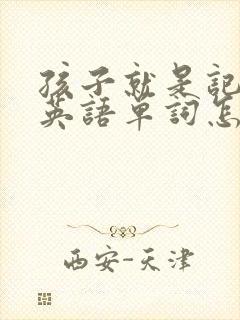 孩子就是記
英語單詞怎
西安-天津